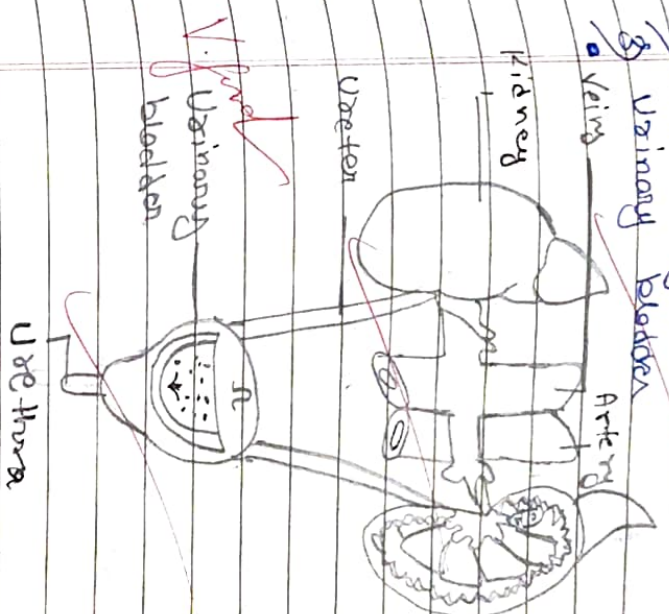 3) Urinary bladder
• Veins
Artery
Kidney
Ureter
V. good
Urinary
bladder
Urethra